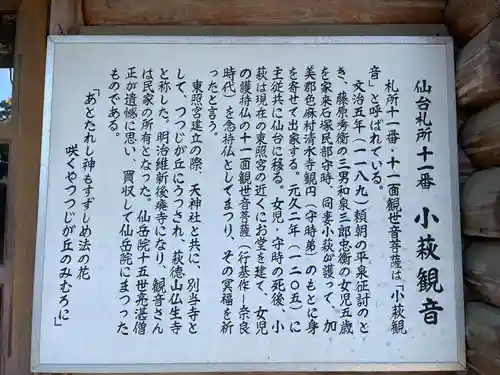 仙台札所十一番 小萩観音
札所十一番・十一面観世音菩薩は「小萩観
音」と呼ばれている。
文治五年（一一八九）頼朝の平泉征討のと
き、藤原秀衡の三男和泉三郎忠衡の女児五歳
を家来石塚民部守時、同妻小萩が護って、加
美郡色麻村清水寺観円（守時弟）のもとに身
を寄せて出家する。元久二年（一二〇五）に
主従共に仙台に移る。女児・守時の死後、小
萩は現在の東照宮の近くにお堂を建て、女児
の護持仏の十一面観世音菩薩（行基作―奈良
時代）を念持仏としてまつり、その冥福を祈
ったと言う。
東照宮建立の際、天神社と共に、別当寺と
して、つつじが丘にうつされ、萩徳山仏生寺
と称した。明治維新後廃寺になり、観音さん
は民家の所有となった。仙岳院十五世亮湛僧
正が遺憾に思い、買収して仙岳院にまつった
ものである。
「あとたれし神もすずしめ法の花
咲くやつつじが丘のみむろに」